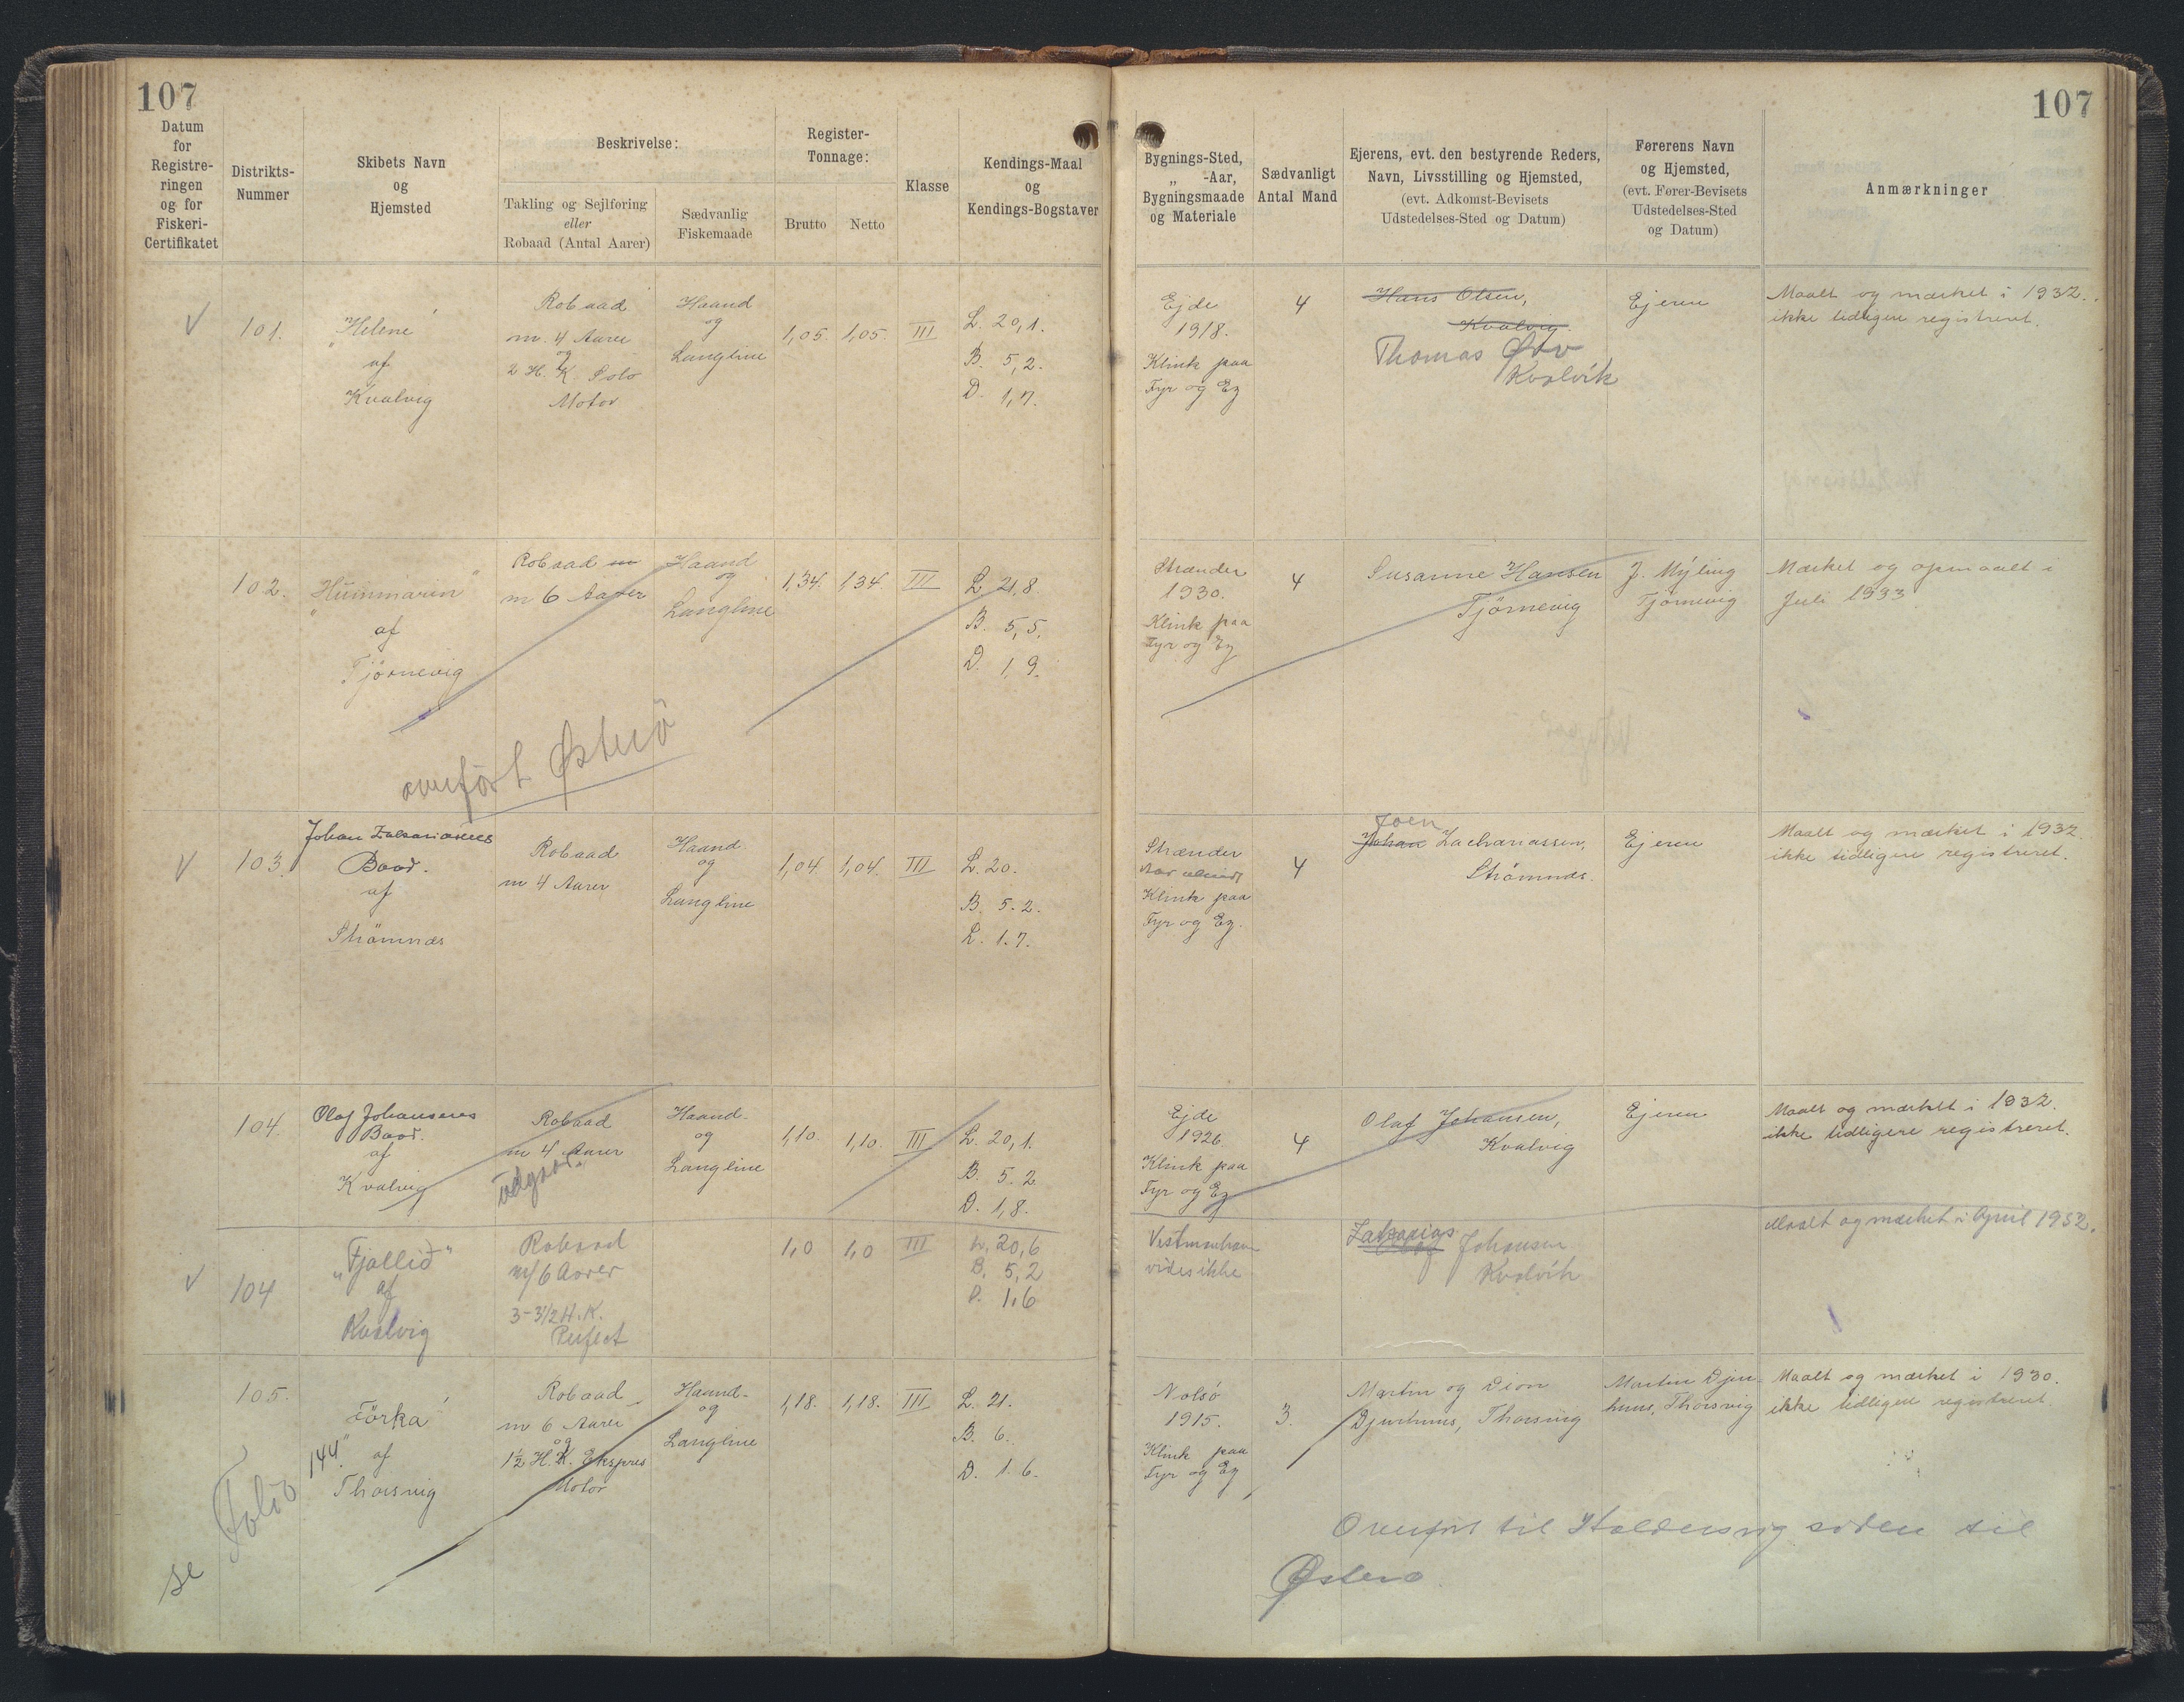 107
107
Datum
for
Registre-
ringen
og for
Fiskeri-
Certifikatet
Distrikts-
Nummer
Skibets Navn
og
Hjemsted
Beskrivelse:
Takling og Sejlføring
eller
Robaad (Antal Aarer)
Sædvanlig
Fiskemaade
Register-
Tonnage:
Brutto
Netto
Klasse
Kendings-Maal
og
Kendings-Bogstaver
Bygnings-Sted,
„ -Aar,
Bygningsmaade
og Materiale
Sædvanligt
Antal Mand
Ejerens, evt. den bestyrende Reders,
Navn, Livsstilling og Hjemsted,
(evt. Adkomst-Bevisets
Udstedelses-Sted og Datum)
Førerens Navn
og Hjemsted,
(evt. Fører-Bevisets
Udstedelses-Sted
og Datum)
Anmærkninger
✓
101.
„Helene"
af
Kvalvig
Robaad
m. 4 Aarer
og
2 H. K. Solo
Motor
Haand
og
Langline
1,05.
1,05.
III
L. 20,1.
B. 5,2.
D. 1,7.
Ejde
1918.
Klink paa
Fyr og Eg
4
Hans Olsen,
Kvalvig.
Thomas
Kvalvik
Ejeren
Maalt og mærket i 1932.
ikke tidligere registreret.
102.
„Hummarin"
af
Tjörnevig
Robaad m
m 6 Aarer
Haand
og
Langline
1,34.
1,34
III
L. 21,8.
B. 5,5.
D. 1,9.
overført Østerö
Strænder
1930.
Klink paa
Fyr og Eg
4
Susanne Hansen
Tjörnevig
J. Mýling
Tjörnevig
Mærket og opmaalt i
Juli 1933
✓
103.
Johan Zakariasens
Baad.
af
Strömnæs
Robaad
m 4 Aarer
Haand.
og
Langline
1,04.
1,04.
III
L. 20.
B. 5.2.
L. 1.7.
Strænder
Aar ukendt
Klink paa
Fyr og Eg.
4
Joen
Johan Zachariassen,
Strömnæs.
Ejeren
Maalt og mærket i 1932.
ikke tidligere registreret.
104.
Olaf Johansens
Baad.
af
Kvalvig
Robaad
m 4 Aarer
Udgaar.
Haand-
og
Langline
1,10.
1,10.
III
L. 20,1.
B. 5.2
D. 1,8.
Ejde
1926
Klink paa
Fyr og Eg
4
Olaf Johansen,
Kvalvig
Ejeren
Maalt og mærket i 1932.
ikke tidligere registreret.
✓
104
„Fjallið"
af
Kvalvig
Robaad
m/6 Aarer
3-3½ H.K.
Perfect
1,0
1,0
III
L. 20,6
B. 5,2
D. 1.6
Vestmanhavn
vides ikke
Zakarias
Olaf Johansen
Kvalvik
Maalt og mærket i April 1952.
105.
„Törka"
af
Thorsvig
Robaad
m 6 Aarer
og
1½ H.K. Ekspres
Motor
Haand-
og
Langline
1,18.
1,18.
III
L. 21.
B. 6.
D. 1.6.
se Folio 144.
Nolsö
1915.
Klink paa
Fyr og Eg
3.
Martin og Dion
Djurhuus, Thorsvig
Martin Djur-
huus, Thorsvig
Maalt og mærket i 1930.
ikke tidligere registreret.
Overført til Haldersvig siden til
Østerø